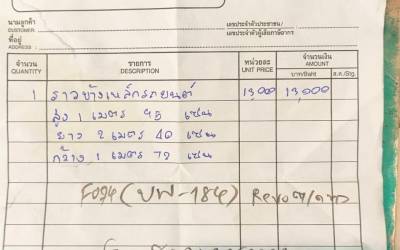 นามลูกค้า
CUSTOMER
เลขประจำตัวประชาชน/
ที่อยู่
ADDRESS
เลขประจำตัวผู้เสียภาษีอากร
จำนวน รายการ หน่วยละ จำนวนเงิน
QUANTITY DESCRIPTION UNIT PRICE AMOUNT
บาท/Baht ส.ต./Stg.
1 ราวข้างเหล็กรถยนต์ 13,000 13,000
สูง 1 เมตร 45 เซน
ยาว 2 เมตร 40 เซน
กว้าง 1 เมตร 72 เซน
(บพ-184) Revo